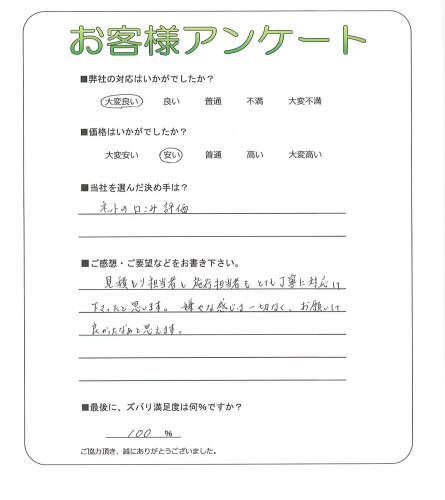 お客様アンケート
■弊社の対応はいかがでしたか？
大変良い 良い 普通 不満 大変不満
■価格はいかがでしたか？
大変安い 安い 普通 高い 大変高い
■当社を選んだ決め手は？
ネットの口コミ評価
■ご感想・ご要望などをお書き下さい。
見積もり担当者も施行担当者もとても丁寧に対応
下さったと思います。嫌やな感じは一切なく、お願いして
良かったなあと思えます。
■最後に、ズバリ満足度は何％ですか？
100 ％
ご協力頂き、誠にありがとうございました。